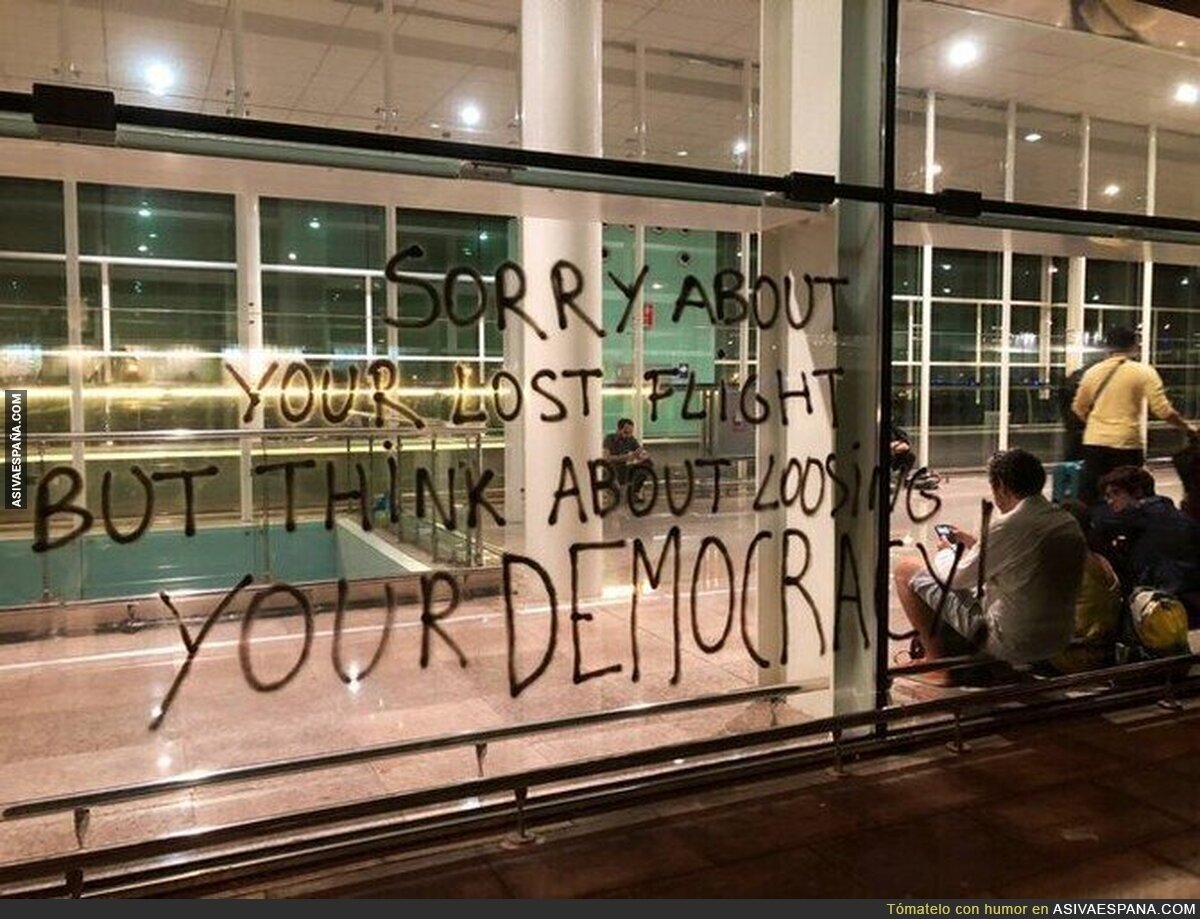 SORRY ABOUT
YOUR LOST FLIGHT
BUT THiNK ABOUT LOOSiNG
YOUR DEMOCRACY!
ASIVAESPAÑA.COM
Tómatelo con humor en ASIVAESPANA.COM